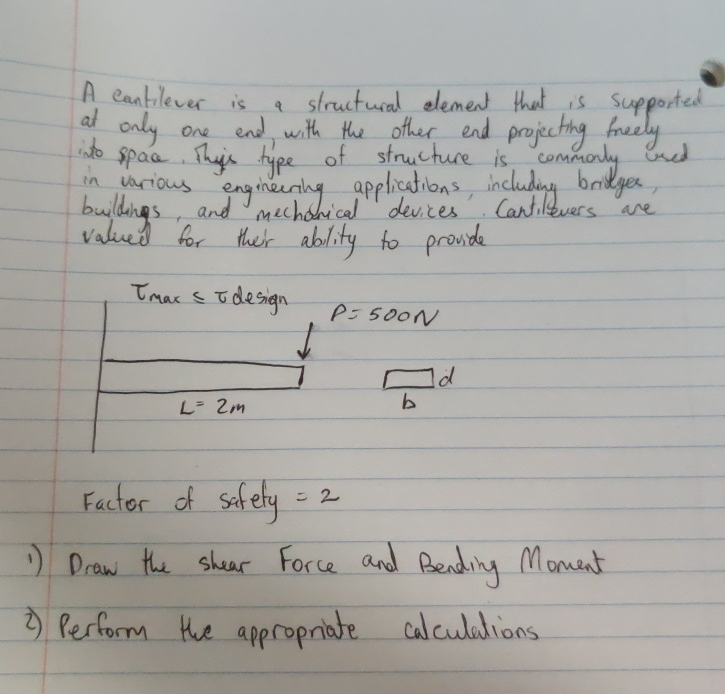 A cantilever is a structural element that is supported
at only one end, with the other end projecting freely
into space. This type of structure is commonly used
in various engineering applications, including bridges,
buildings, and mechanical devices. Cantilevers are
valued for their ability to provide
τmax ≤ τdesign
P = 500N
d
L = 2m
b
Factor of safety = 2
1) Draw the shear Force and Bending Moment
2) Perform the appropriate calculations